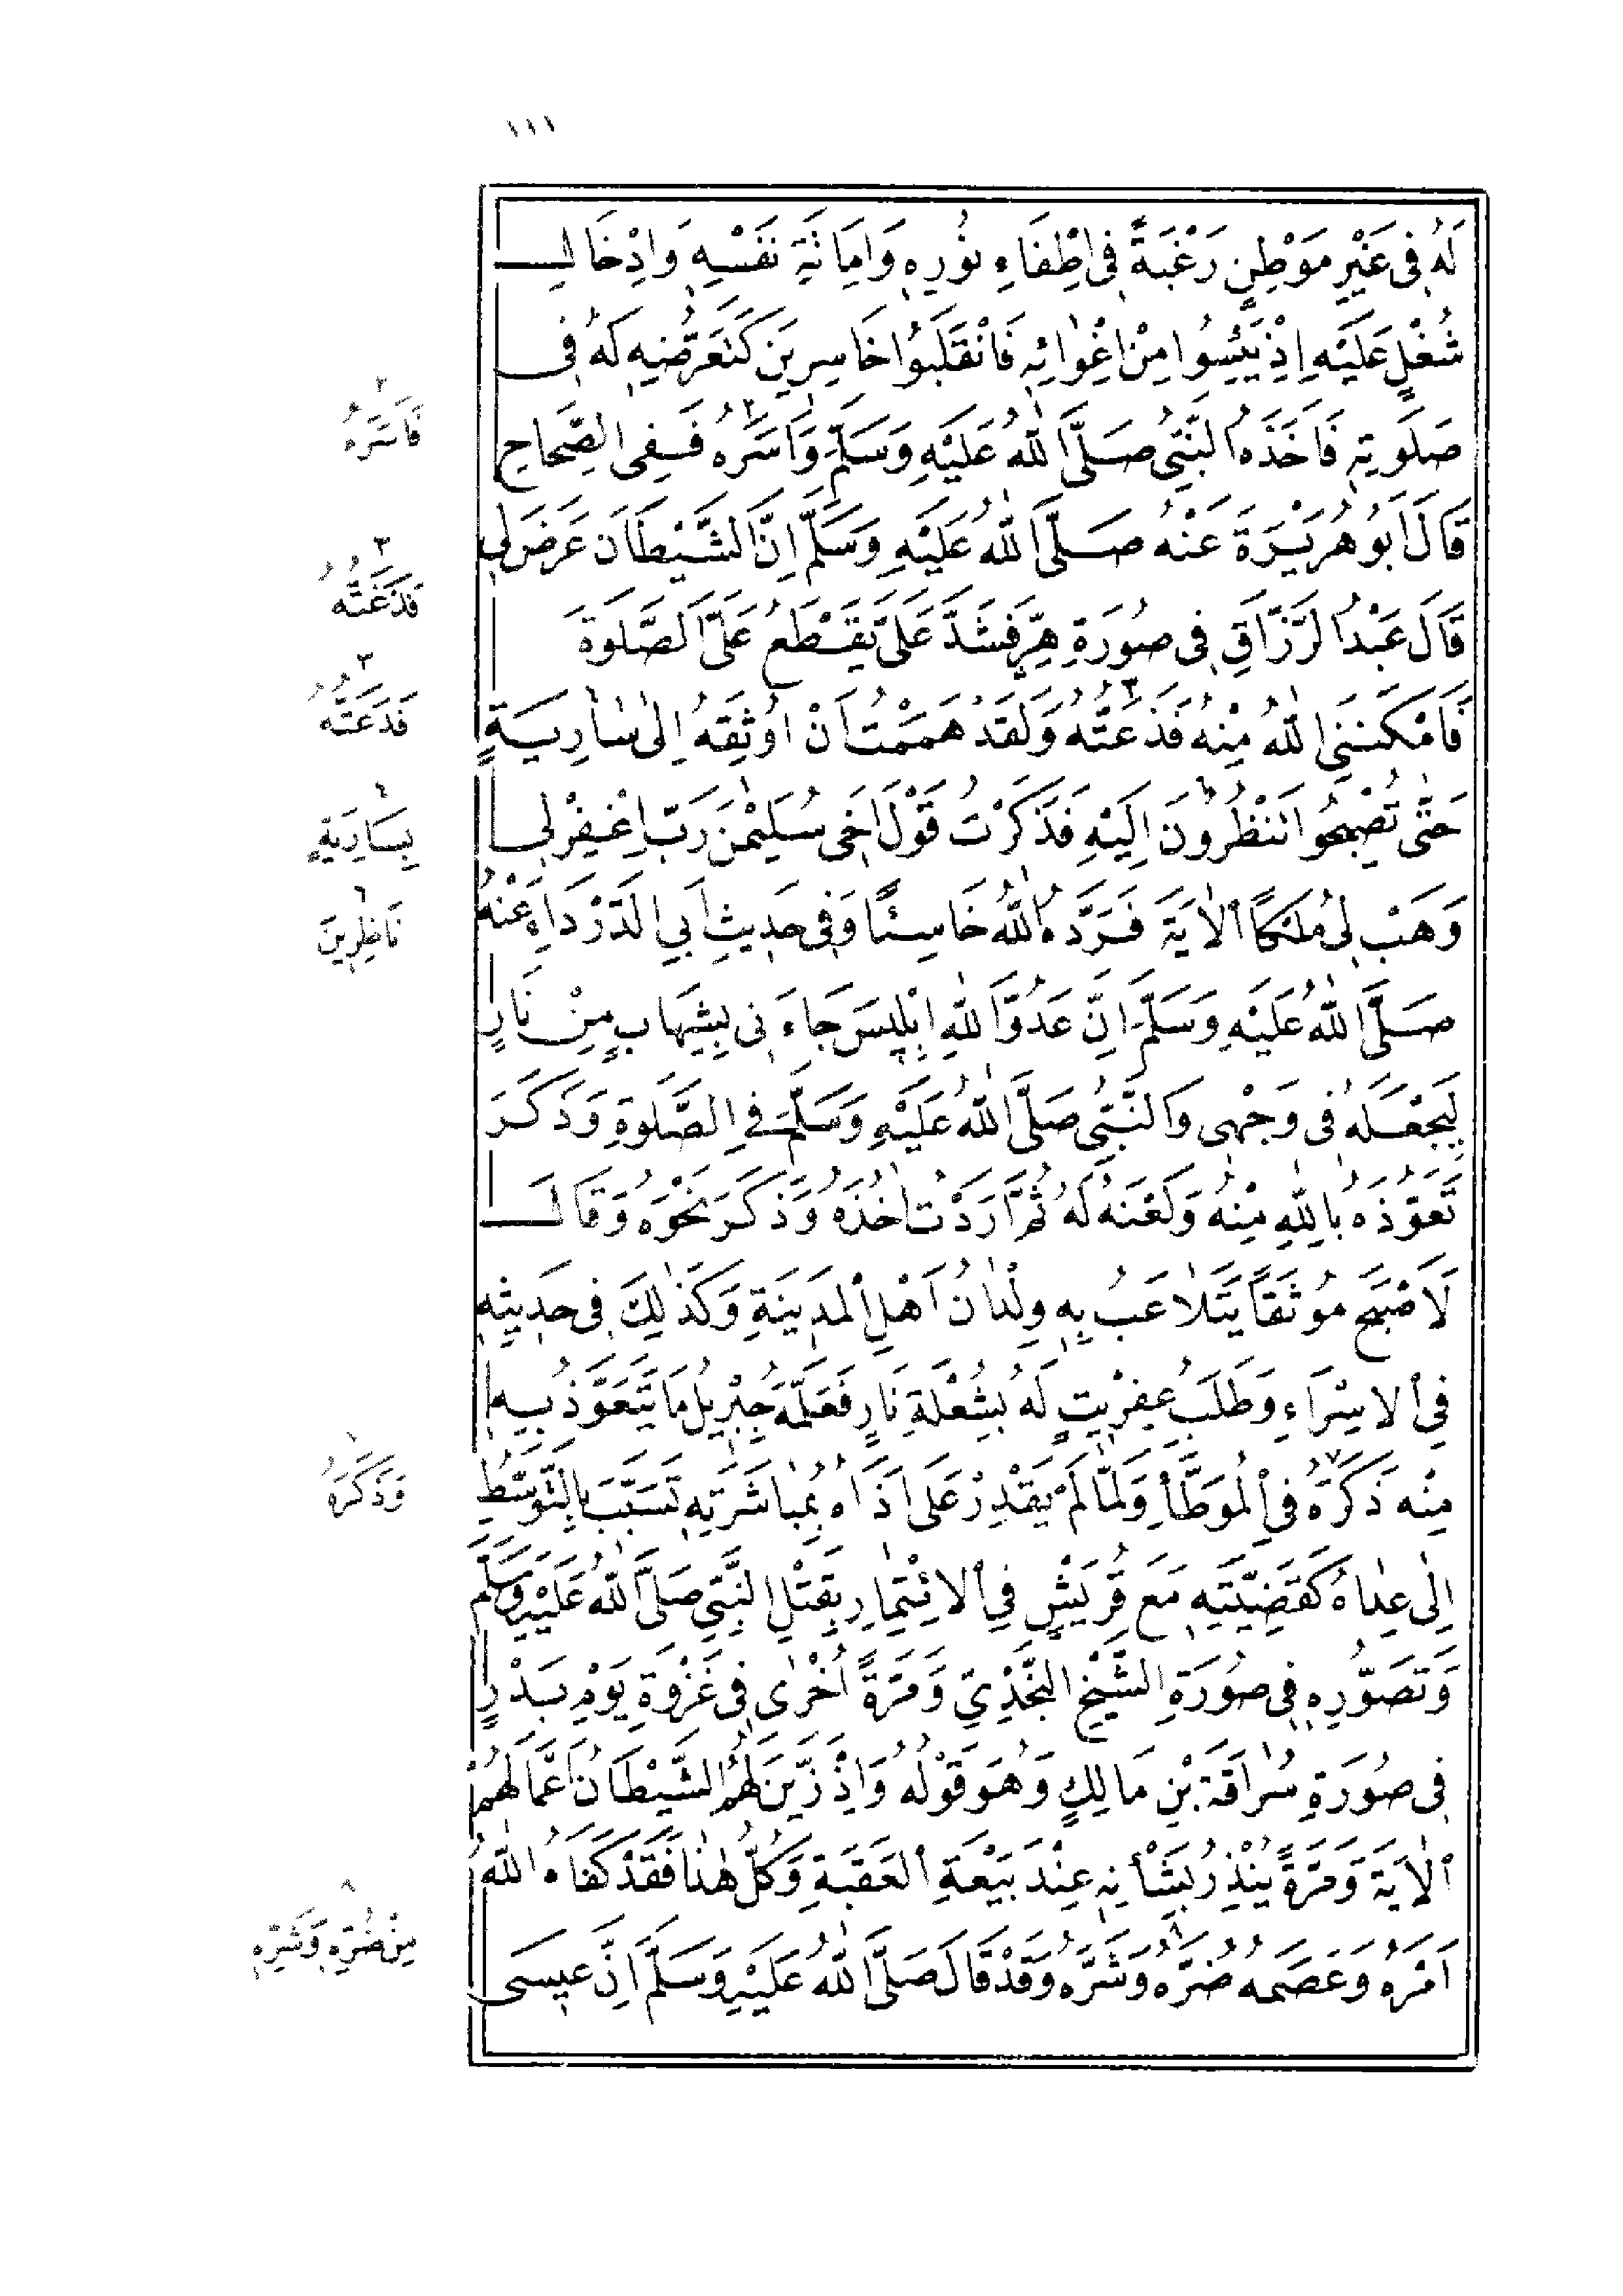 ١١١
لَهُ فِى غَيْرِ مَوْطِنٍ رَغْبَةً فِى اِطْفَاءِ نُورِهِ وَاِمَاتَةِ نَفْسِهِ وَاِدْخَالِ
شُغْلٍ عَلَيْهِ اِذْ يَئِسُوا مِنْ اِغْوَائِهِ فَانْقَلَبُوا خَاسِرِينَ كَتَعَرُّضِهِ لَهُ فِى
صَلٰوتِهِ فَاَخَذَهُ النَّبِىُّ صَلَّى اللّٰهُ عَلَيْهِ وَسَلَّمَ وَاَسَرَهُ ٢ فَفِى الصِّحَاحِ
فَاَسَرَهُ ٢
قَالَ اَبُو هُرَيْرَةَ عَنْهُ صَلَّى اللّٰهُ عَلَيْهِ وَسَلَّمَ اِنَّ الشَّيْطَانَ عَرَضَ لِى
فَذَغَتُّهُ ٣
قَالَ عَبْدُ الرَّزَّاقِ فِى صُورَةِ هِرٍّ فَشَدَّ عَلَىَّ يَقْطَعُ عَلَىَّ الصَّلٰوةَ
فَاَمْكَنَنِى اللّٰهُ مِنْهُ فَذَعَتُّهُ ٣ وَلَقَدْ هَمَمْتُ اَنْ اُوثِقَهُ اِلٰى سَارِيَةٍ
فَدَعَتُّهُ ٣
حَتّٰى تُصْبِحُوا تَنْظُرُونَ ٦ اِلَيْهِ فَذَكَرْتُ قَوْلَ اَخِى سُلَيْمٰنَ رَبِّ اغْفِرْ لِى
بِسَارِيَةٍ ٤
وَهَبْ لِى مُلْكًا الْاٰيَةَ فَرَدَّهُ اللّٰهُ خَاسِئًا وَفِى حَدِيثِ اَبِى الدَّرْدَاءِ عَنْهُ
نَاظِرِينَ ٦
صَلَّى اللّٰهُ عَلَيْهِ وَسَلَّمَ اِنَّ عَدُوَّ اللّٰهِ اِبْلِيسَ جَاءَنِى بِشِهَابٍ مِنْ نَارٍ
لِيَجْعَلَهُ فِى وَجْهِى وَالنَّبِىُّ صَلَّى اللّٰهُ عَلَيْهِ وَسَلَّمَ فِى الصَّلٰوةِ وَذَكَرَ
تَعَوُّذَهُ بِاللّٰهِ مِنْهُ وَلَعْنَهُ لَهُ ثُمَّ اَرَدْتُ اَخْذَهُ وَذَكَرَ نَحْوَهُ وَقَالَ
لَاَصْبَحَ مُوثَقًا يَتَلَاعَبُ بِهِ وِلْدَانُ اَهْلِ الْمَدِينَةِ وَكَذٰلِكَ فِى حَدِيثِهِ
فِى الْاِسْرَاءِ وَطَلَبُ عِفْرِيتٍ لَهُ بِشُعْلَةِ نَارٍ فَعَلَّمَهُ جِبْرِيلُ مَا يَتَعَوَّذُ بِهِ
مِنْهُ ذَكَرَهُ ٧ فِى الْمُوَطَّأِ وَلَمَّا لَمْ يَقْدِرْ عَلَى اَذَاهُ بِمُبَاشَرَتِهِ تَسَبَّبَ بِالتَّوَسُّطِ
وَذَكَرَهُ
اِلٰى عِدَاهُ كَقَضِيَّتِهِ مَعَ قُرَيْشٍ فِى الْاِئْتِمَارِ بِقَتْلِ النَّبِىِّ صَلَّى اللّٰهُ عَلَيْهِ وَسَلَّمَ
وَتَصَوُّرِهِ فِى صُورَةِ الشَّيْخِ النَّجْدِىِّ وَمَرَّةً اُخْرٰى فِى غَزْوَةِ يَوْمِ بَدْرٍ
فِى صُورَةِ سُرَاقَةَ بْنِ مَالِكٍ وَهُوَ قَوْلُهُ وَاِذْ زَيَّنَ لَهُمُ الشَّيْطَانُ اَعْمَالَهُمْ
الْاٰيَةَ وَمَرَّةً يُنْذِرُ بِشَأْنِهِ عِنْدَ بَيْعَةِ الْعَقَبَةِ وَكُلُّ هٰذَا فَقَدْ كَفَاهُ اللّٰهُ
اَمْرَهُ وَعَصَمَهُ ضُرَّهُ وَشَرَّهُ ٨ وَقَدْ قَالَ صَلَّى اللّٰهُ عَلَيْهِ وَسَلَّمَ اِنَّ عِيسَى
مِنْ ضُرِّهِ وَشَرِّهِ ٨